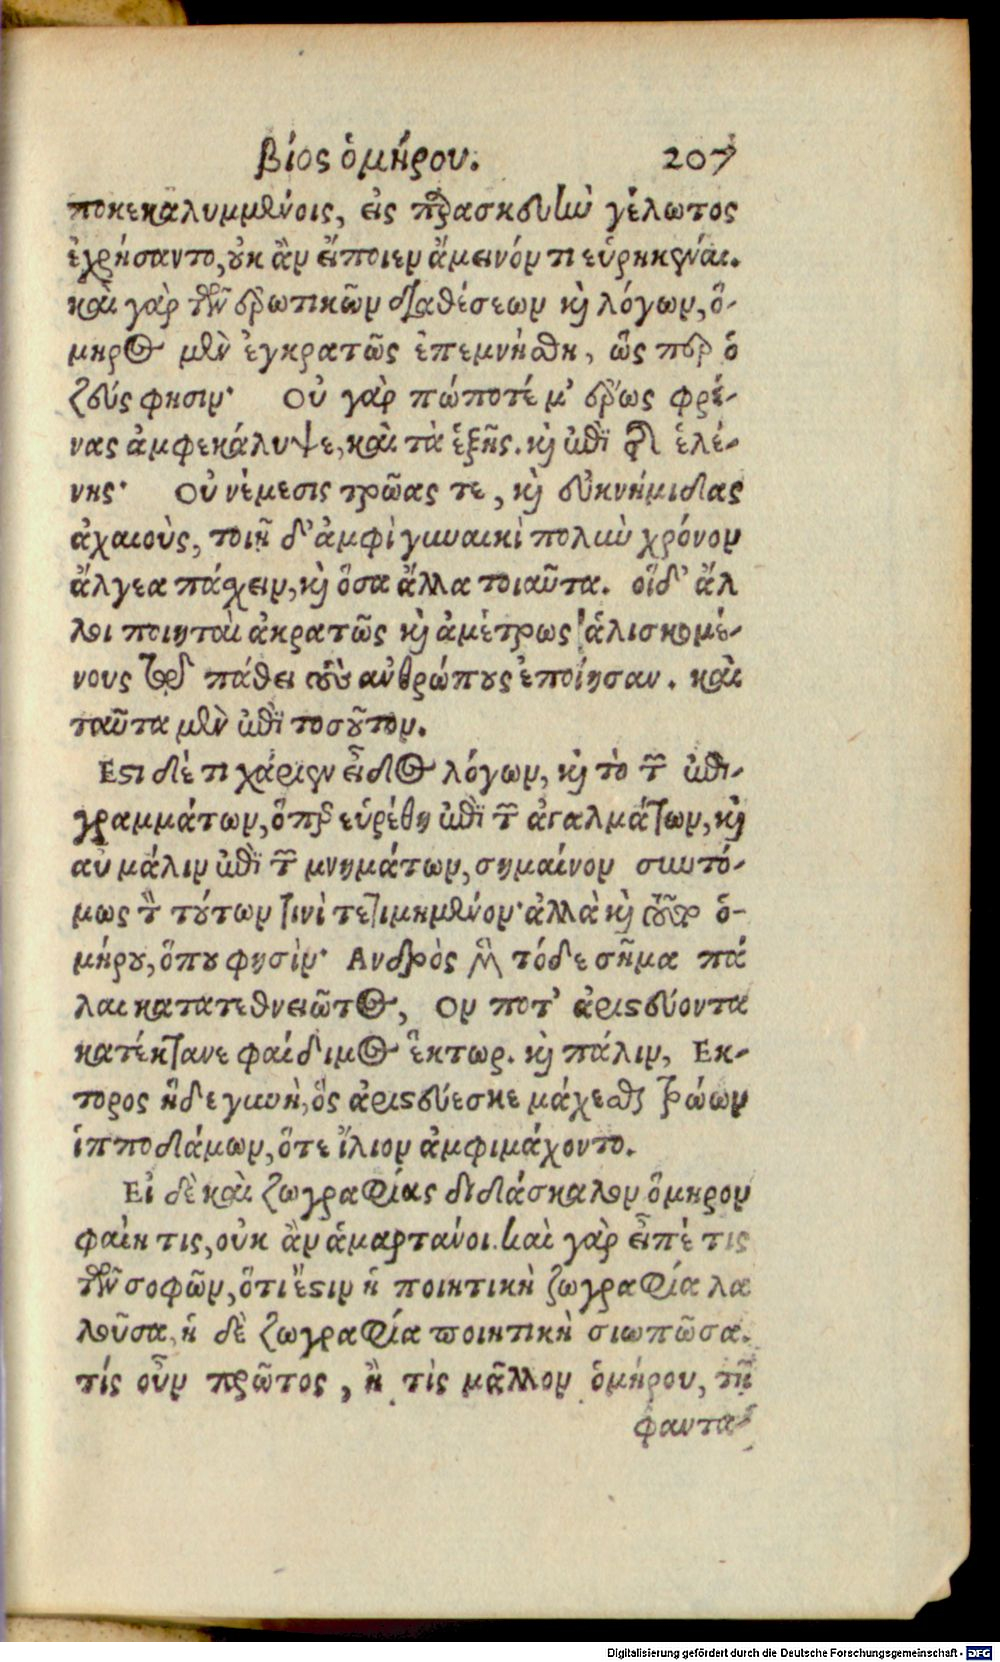 βίος ὁμήρου. 207
ποκεκαλυμμένοις, εἰς παρασκευὴν γέλωτος
ἐχρήσαντο, οὐκ ἂν εἴποιεν ἄμεινόν τι εὑρηκέναι.
καὶ γὰρ τῶν ἐρωτικῶν διαθέσεων καὶ λόγων, ὅ-
μηρος μὲν ἐγκρατῶς ἐπεμνήσθη, ὥς περ ὁ
ζεύς φησιν· Οὐ γὰρ πώποτέ μ' ἔρως φρέ-
νας ἀμφεκάλυψε, καὶ τὰ ἑξῆς. καὶ ἐπὶ τῆς ἑλέ-
νης· Οὐ νέμεσις τρῶας τε, καὶ εὐκνήμιδας
ἀχαιοὺς, τοιῇ δ' ἀμφὶ γυναικὶ πολὺν χρόνον
ἄλγεα πάσχειν, καὶ ὅσα ἄλλα τοιαῦτα. οἵδ' ἄλ
λοι ποιηταὶ ἀκρατῶς καὶ ἀμέτρως ἁλισκομέ-
νους τῷ πάθει τοὺς ἀνθρώπους ἐποίησαν. καὶ
ταῦτα μὲν ἐπὶ τοσοῦτον.
Εστι δέ τι χάριεν εἶδος λόγων, καὶ τὸ τῶν ἐπι-
γραμμάτων, ὅπερ εὑρέθη ἐπὶ τῶν ἀγαλμάτων, καὶ
αὐ μάλιν ἐπὶ τῶν μνημάτων, σημαίνον συντό-
μως τὸν τούτων τινὶ τετιμημένον· ἀλλὰ καὶ τοῦτο ὁ-
μήρου, ὅπου φησὶν· Ανδρὸς μὲν τόδε σῆμα πά
λαι κατατεθνειῶτος, Ον ποτ' ἀριστεύοντα
κατέκτανε φαίδιμος ἕκτωρ. καὶ πάλιν, Εκ-
τορος ἥδε γυνὴ, ὃς ἀριστεύεσκε μάχεσθαι τρώων
ἱπποδάμων, ὅτε ἴλιον ἀμφιμάχοντο.
Εἰ δὲ καὶ ζωγραφίας διδάσκαλον ὅμηρον
φαίη τις, οὐκ ἂν ἁμαρτάνοι. καὶ γὰρ εἶπέ τις
τῶν σοφῶν, ὅτι ἔστιν ἡ ποιητικὴ ζωγραφία λα
λοῦσα, ἡ δὲ ζωγραφία ποιητικὴ σιωπῶσα.
τίς οὖν πρῶτος, ἢ τίς μᾶλλον ὁμήρου, τῇ
φαντα-
Digitalisierung gefördert durch die Deutsche Forschungsgemeinschaft - DFG